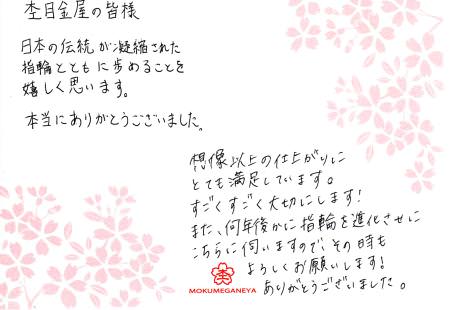 杢目金屋の皆様
日本の伝統が凝縮された
指輪とともに歩めることを
嬉しく思います。
本当にありがとうございました。
想像以上の仕上がりに
とても満足しています。
すごくすごく大切にします!
また、何年後かに指輪を進化させに
こちらに伺いますので、その時も
よろしくお願いします!
ありがとうございました。
MOKUMEGANEYA